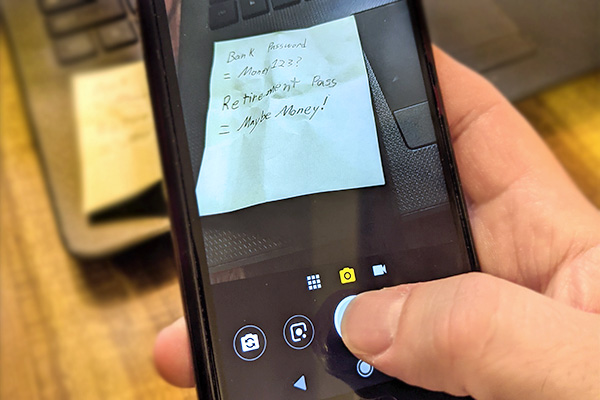 Bank Password
= Money123?
Retirement Pass
= Maybe Money!